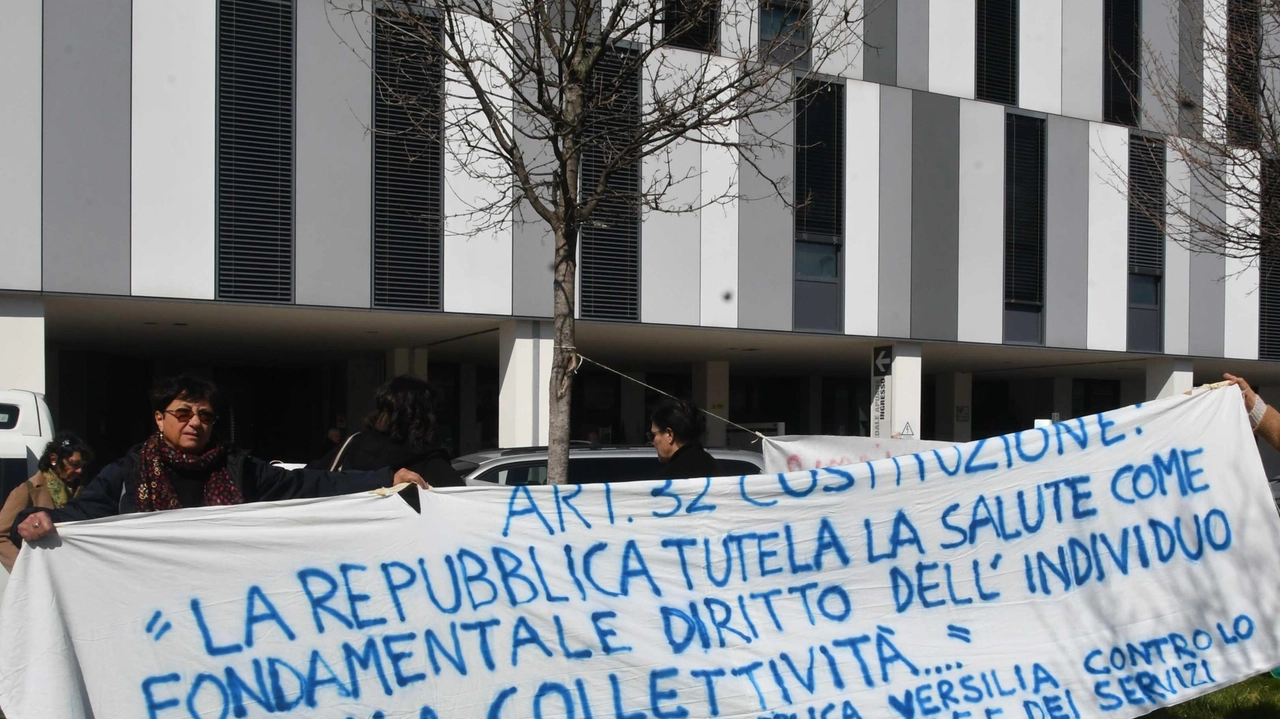 INGRESSO
ART. 32 COSTITUZIONE:
"LA REPUBBLICA TUTELA LA SALUTE COME
FONDAMENTALE DIRITTO DELL' INDIVIDUO
COLLETTIVITÀ.... "
VERSILIA CONTRO LO
DEI SERVIZI